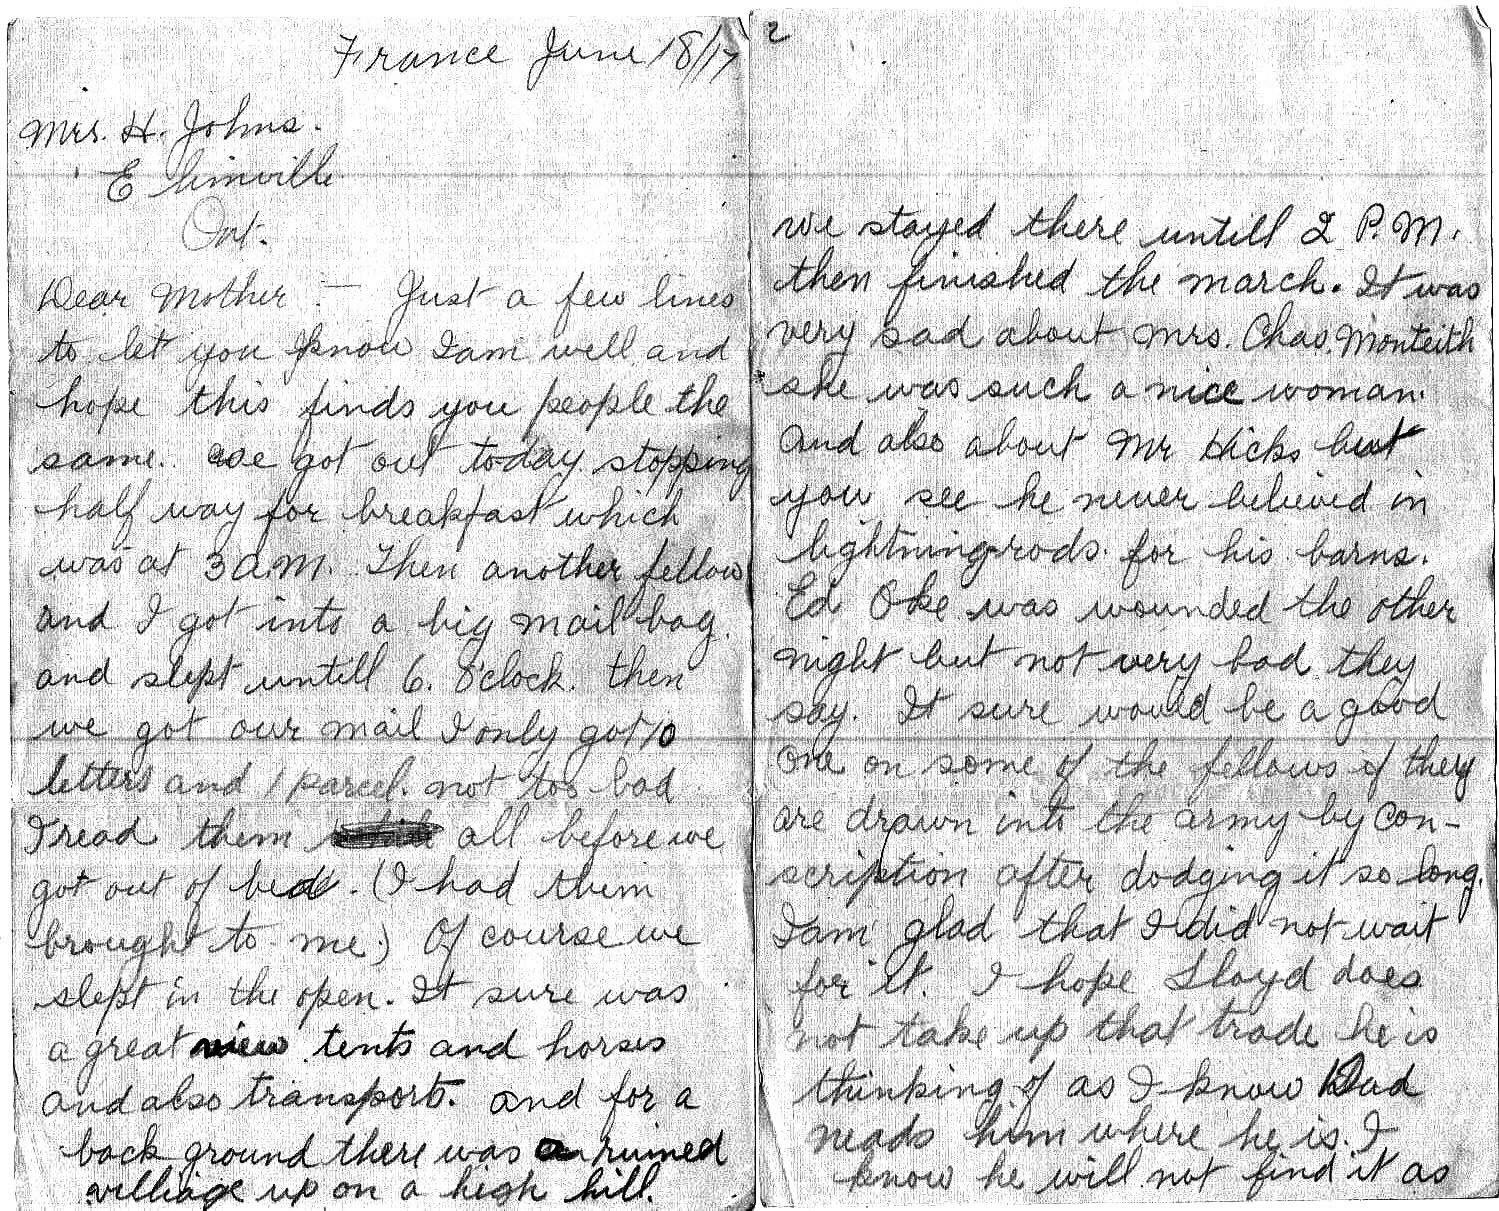 France June 18/17
Mrs. H. Johns.
Elimville
Ont.
Dear Mother :- Just a few lines
to let you know I am well and
hope this finds you people the
same. We got out today stopping
half way for breakfast which
was at 3 a.m. Then another fellow
and I got into a big mail bag
and slept untill 6. O'clock. then
we got our mail I only got 10
letters and 1 parcel. not too bad
I read them all before we
got out of bed. (I had them
brought to me.) Of course we
slept in the open. It sure was
a great view tents and horses
and also transports. and for a
back ground there was a ruined
villiage up on a high hill.
2
we stayed there untill 2 P.M.
then finished the march. It was
very sad about Mrs. Chas. Monteith
she was such a nice woman.
And also about Mr Hicks but
you see he never believed in
lightning-rods for his barns.
Ed Oke was wounded the other
night but not very bad they
say. It sure would be a good
one on some of the fellows if they
are drawn into the army by con-
scription after dodging it so long.
I am glad that I did not wait
for it. I hope Lloyd does
not take up that trade he is
thinking of as I know Dad
neads him where he is. I
know he will not find it as